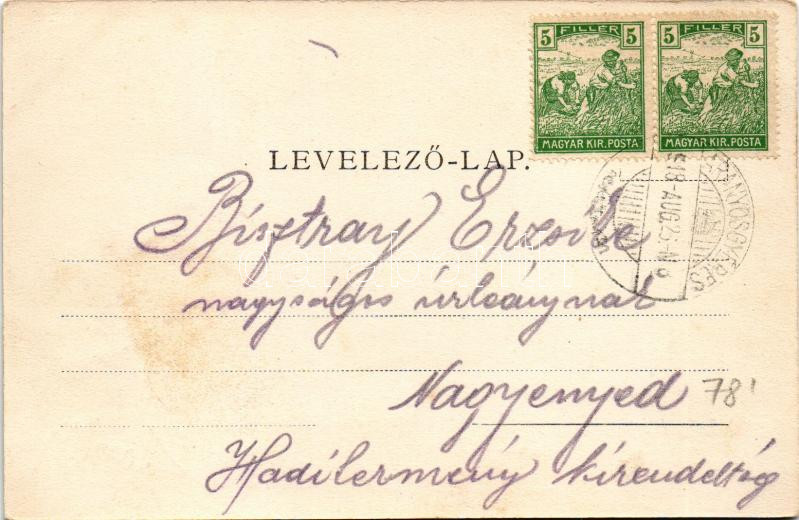 5 FILLER 5
MAGYAR KIR. POSTA
5 FILLER 5
MAGYAR KIR. POSTA
LEVELEZŐ-LAP.
ARANYOSGYÉRES
918-AUG.25
Bisztray Erzsike
nagyságos úrleánynak
Nagyenyed
78'
Haditermény kirendeltség